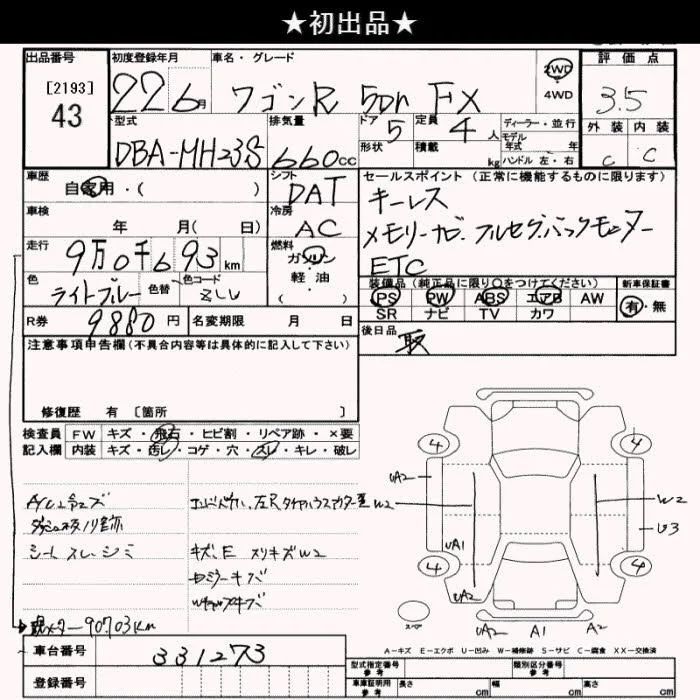 ★初出品★
出品番号 初度登録年月 車名・グレード 評価点
[2193] 43 22年 6月 ワゴンR 5Dr FX 2WD 4WD 3.5
型式 排気量 ドア 5 定員 4人 ディーラー・並行 外装 内装
DBA-MH23S 660cc 形状 積載 kg モデル年式 年 C C
ハンドル 左・右
車歴 シフト セールスポイント (正常に機能するものに限ります)
自家用・( ) DAT キーレス
車検 冷房 メモリーナビ.フルセグ.バックモニター
年 月( 日) AC ETC
走行 燃料
9万0千693km ガソリン
軽油
( )
色 色替 色コード 装備品(純正品に限り○をつけてください) 新車保証書
ライトブルー PS PW ABS エアB AW 有・無
SR ナビ TV カワ
R券 9880円 名変期限 月 日 後日品
取
注意事項申告欄(不具合内容等は具体的に記入して下さい)
修復歴 有 [箇所 ]
検査員 FW キズ・飛石・ヒビ割・リペア跡・×要
記入欄 内装 キズ・汚レ・コゲ・穴・スレ・キレ・破レ
シートスレ・シミ キズ、E スリキズW2
現メーター90703km
車台番号 331273
登録番号
4 4
UA2 W2 W2
U3
UA1
4 4
UA2
スペア UA2 A1 A2
A-キズ E-エクボ U-凹み W-補修跡 S-サビ C-腐食 XX-交換済
型式指定番号 参考 類別区分番号 参考
車庫証明用 参考 長さ cm 幅 cm 高さ cm